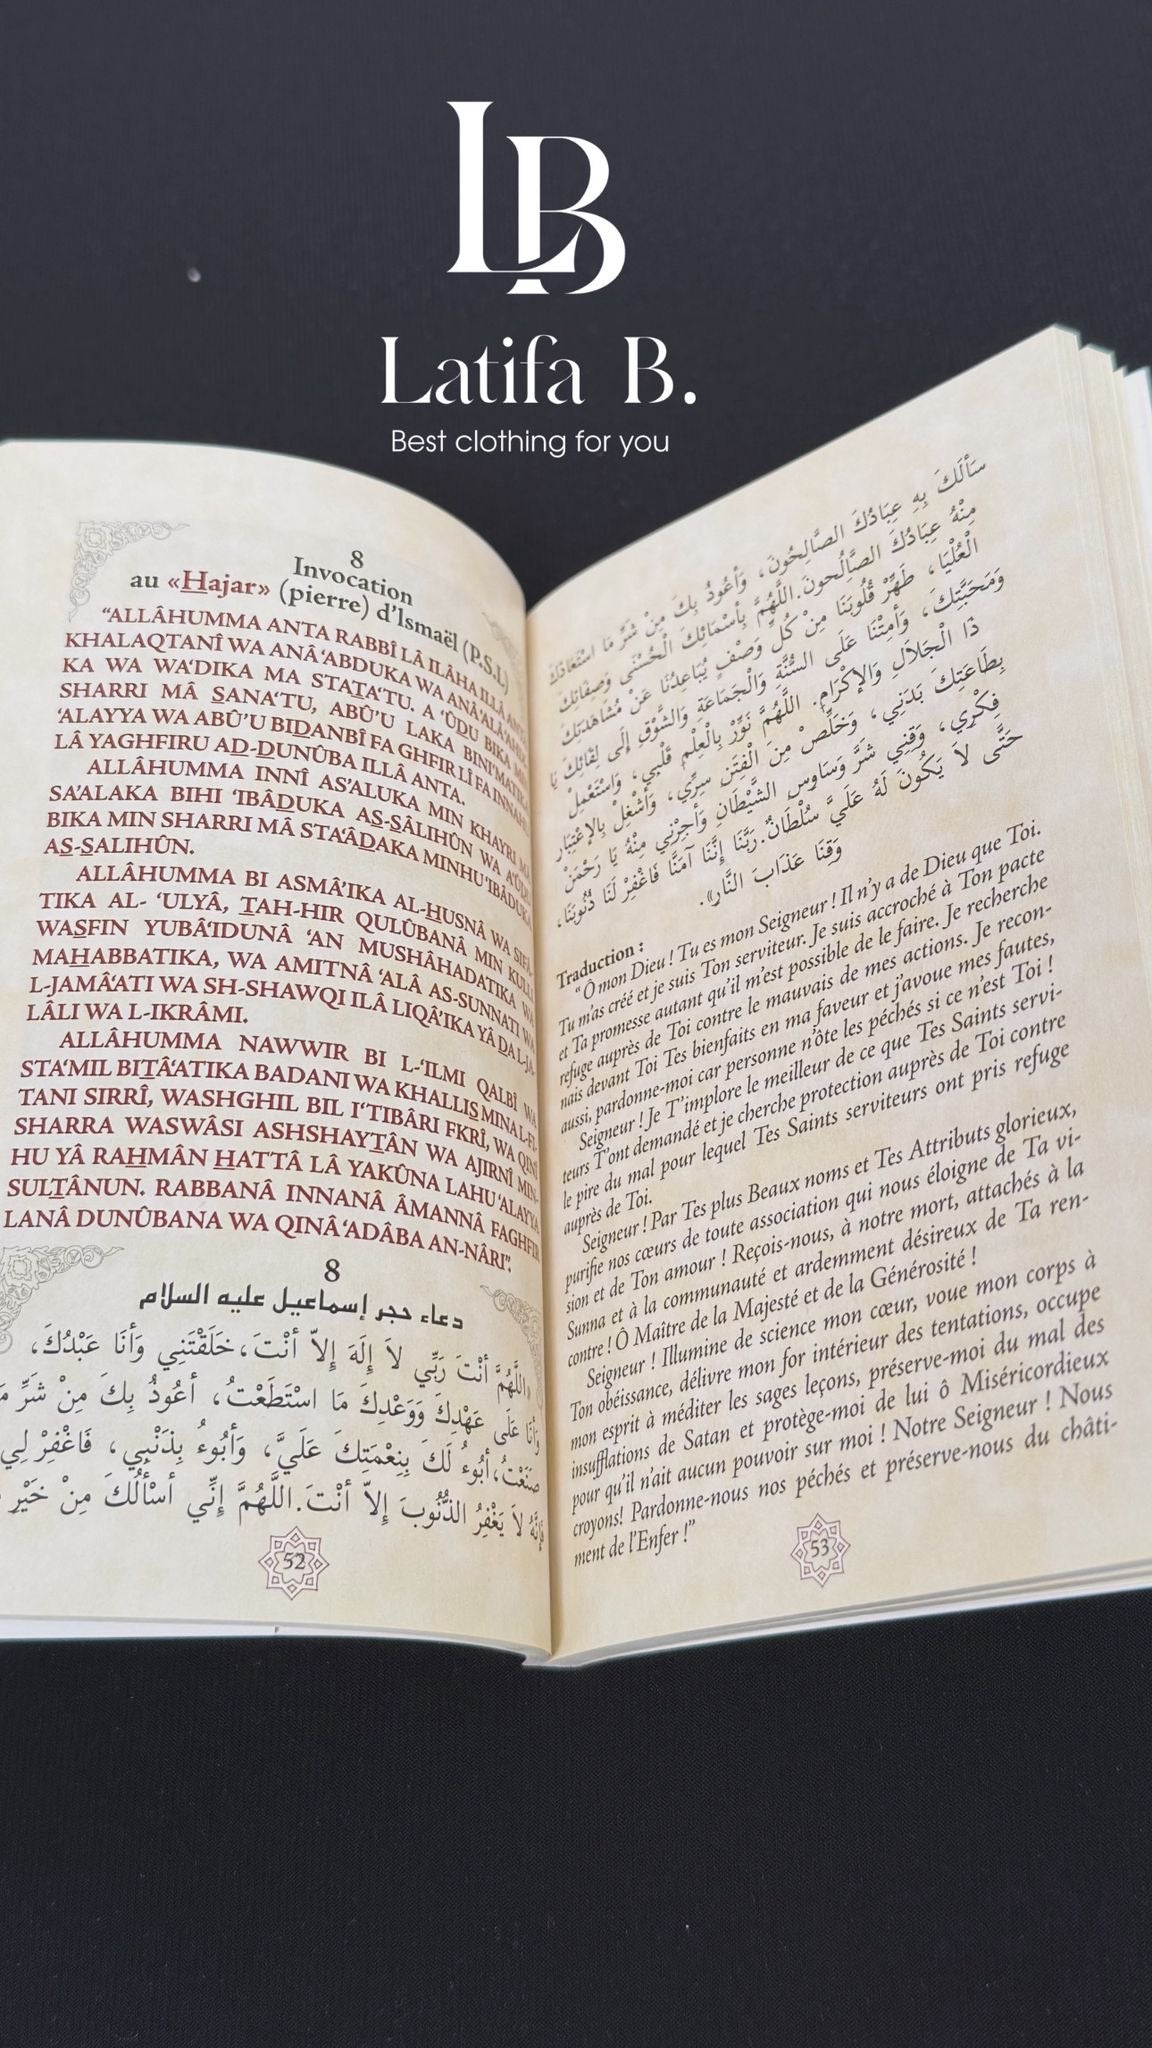 LB
Latifa B.
Best clothing for you
8
Invocation
au «Hajar» (pierre) d'Ismaël (P.S.L)
“ALLÂHUMMA ANTA RABBÎ LÂ ILÂHA ILLÂ ANTA
KHALAQTANÎ WA ANÂ ‘ABDUKA WA ANÂ ‘ALÂ ‘AHDI-
KA WA WA‘DIKA MA STATA‘TU. A ‘ÛDU BIKA MIN
SHARRI MÂ SANA‘TU, ABÛ’U LAKA BINI‘MATIKA
‘ALAYYA WA ABÛ’U BIDANBÎ FA GHFIR LÎ FA INNAHU
LÂ YAGHFIRU AD-DUNÛBA ILLÂ ANTA.
ALLÂHUMMA INNÎ AS’ALUKA MIN KHAYRI MA
SA’ALAKA BIHI ‘IBÂDUKA AS-SÂLIHÛN WA A‘ÛDU
BIKA MIN SHARRI MÂ STA‘ÂDAKA MINHU ‘IBÂDUKA
AS-SALIHÛN.
ALLÂHUMMA BI ASMÂ’IKA AL-HUSNÂ WA SIFÂ-
TIKA AL- ‘ULYÂ, TAH-HIR QULÛBANÂ MIN KULLI
WASFIN YUBÂ‘IDUNÂ ‘AN MUSHÂHADATIKA WA
MAHABBATIKA, WA AMITNÂ ‘ALÂ AS-SUNNATI WA
L-JAMÂ‘ATI WA SH-SHAWQI ILÂ LIQÂ’IKA YÂ DA L-JA-
LÂLI WA L-IKRÂMI.
ALLÂHUMMA NAWWIR BI L-‘ILMI QALBÎ WA
STA‘MIL BITÂ‘ATIKA BADANI WA KHALLIS MINA L-FI-
TANI SIRRÎ, WASHGHIL BIL I‘TIBÂRI FKRÎ, WA QINÎ
SHARRA WASWÂSI ASHSHAYTÂN WA AJIRNÎ MIN-
HU YÂ RAHMÂN HATTÂ LÂ YAKÛNA LAHU ‘ALAYYA
SULTÂNUN. RABBANÂ INNANÂ ÂMANNÂ FAGHFIR
LANÂ DUNÛBANA WA QINÂ ‘ADÂBA AN-NÂRI”.
8
دعاء حجر إسماعيل عليه السلام
«اللَّهُمَّ أَنْتَ رَبِّي لاَ إِلَهَ إِلاَّ أَنْتَ، خَلَقْتَنِي وَأَنَا عَبْدُكَ،
وَأَنَا عَلَى عَهْدِكَ وَوَعْدِكَ مَا اسْتَطَعْتُ، أَعُوذُ بِكَ مِنْ شَرِّ مَا
صَنَعْتُ، أَبُوءُ لَكَ بِنِعْمَتِكَ عَلَيَّ، وَأَبُوءُ بِذَنْبِي، فَاغْفِرْ لِي
فَإِنَّهُ لاَ يَغْفِرُ الذُّنُوبَ إِلاَّ أَنْتَ. اللَّهُمَّ إِنِّي أَسْأَلُكَ مِنْ خَيْرِ
52
سَأَلَكَ بِهِ عِبَادُكَ الصَّالِحُونَ، وَأَعُوذُ بِكَ مِنْ شَرِّ مَا اسْتَعَاذَكَ
مِنْهُ عِبَادُكَ الصَّالِحُونَ. اللَّهُمَّ بِأَسْمَائِكَ الْحُسْنَى وَصِفَاتِكَ
الْعُلْيَا، طَهِّرْ قُلُوبَنَا مِنْ كُلِّ وَصْفٍ يُبَاعِدُنَا عَنْ مُشَاهَدَتِكَ
وَمَحَبَّتِكَ، وَأَمِتْنَا عَلَى السُّنَّةِ وَالْجَمَاعَةِ وَالشَّوْقِ إِلَى لِقَائِكَ يَا
ذَا الْجَلاَلِ وَالإِكْرَامِ. اللَّهُمَّ نَوِّرْ بِالْعِلْمِ قَلْبِي، وَاسْتَعْمِلْ
بِطَاعَتِكَ بَدَنِي، وَخَلِّصْ مِنَ الْفِتَنِ سِرِّي، وَأَشْغِلْ بِالإِعْتِبَارِ
فِكْرِي، وَقِنِي شَرَّ وَسَاوِسِ الشَّيْطَانِ وَأَجِرْنِي مِنْهُ يَا رَحْمَنُ
حَتَّى لاَ يَكُونَ لَهُ عَلَيَّ سُلْطَانٌ. رَبَّنَا إِنَّنَا آمَنَّا فَاغْفِرْ لَنَا ذُنُوبَنَا،
وَقِنَا عَذَابَ النَّارِ».
Traduction :
“Ô mon Dieu ! Tu es mon Seigneur ! Il n’y a de Dieu que Toi.
Tu m’as créé et je suis Ton serviteur. Je suis accroché à Ton pacte
et Ta promesse autant qu’il m’est possible de le faire. Je recherche
refuge auprès de Toi contre le mauvais de mes actions. Je recon-
nais devant Toi Tes bienfaits en ma faveur et j’avoue mes fautes,
aussi, pardonne-moi car personne n’ôte les péchés si ce n’est Toi !
Seigneur ! Je T’implore le meilleur de ce que Tes Saints servi-
teurs T’ont demandé et je cherche protection auprès de Toi contre
le pire du mal pour lequel Tes Saints serviteurs ont pris refuge
auprès de Toi.
Seigneur ! Par Tes plus Beaux noms et Tes Attributs glorieux,
purifie nos cœurs de toute association qui nous éloigne de Ta vi-
sion et de Ton amour ! Reçois-nous, à notre mort, attachés à la
Sunna et à la communauté et ardemment désireux de Ta ren-
contre ! Ô Maître de la Majesté et de la Générosité !
Seigneur ! Illumine de science mon cœur, voue mon corps à
Ton obéissance, délivre mon for intérieur des tentations, occupe
mon esprit à méditer les sages leçons, préserve-moi du mal des
insufflations de Satan et protège-moi de lui ô Miséricordieux
pour qu’il n’ait aucun pouvoir sur moi ! Notre Seigneur ! Nous
croyons! Pardonne-nous nos péchés et préserve-nous du châti-
ment de l’Enfer !”
53